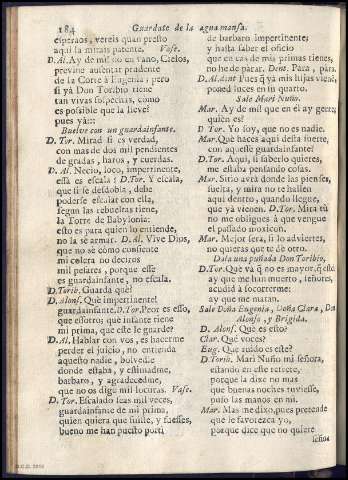 184 Guardate de la agua mansa.
esperaos, vereis quan presto
aqui la mirais patente. Vase.
D. Al. Ay de mi! no en vano, Cielos,
previne ausentar prudente
de la Corte à Eugenia; pero
si yà Don Toribio tiene
tan vivas sospechas, como
es possible que la lleve?
pues yà:::
Buelve con un guardainfante.
D. Tor. Mirad si es verdad,
con mas de dos mil pendientes
de gradas, haros, y cuerdas.
D. Al. Necio, loco, impertinente,
essa es escala? D. Tor. Y escala,
que si se desdobla, debe
poderse escalar con ella,
segun las rebueltas tiene,
la Torre de Babylonia:
esto es para quien lo entiende,
no la sè armar. D. Al. Vive Dios,
que no sè còmo consiente
mi colera no deciros
mil pesares, porque esse
es guardainfante, no escala.
D. Torib. Guarda què?
D. Alons. Què impertinente!
guardainfante. D. Tor. Peor es esso,
que essotro; què infante tiene
mi prima, que este le guarde?
D. Al. Hablar con vos, es hacerme
perder el juicio, no entienda
aquesto nadie, bolvedle
donde estaba, y estimadme,
barbaro, y agradecedme,
que no os digo mil locuras. Vase.
D. Tor. Escalado seas mil veces,
guardainfante de mi prima,
quien quiera que fuiste, y fuesses,
bueno me han puesto por ti
de barbaro impertinente;
y hasta saber el oficio
que en casa de mis primas tienes,
no he de parar. Dent. Para, para.
D. Al. dent. Pues què yà mis hijas vienen,
poned luces en su quarto.
Sale Mari Nuño.
Mar. Ay de mi! que en èl ay gente;
quien es?
D. Tor. Yo soy, que no es nadie.
Mar. Què haces aqui desta suerte,
con aquesse guardainfante?
D. Tor. Aqui, si saberlo quieres,
me estaba pensando cosas.
Mar. Sitio avrà donde las pienses,
suelta, y mira no te hallen
aqui dentro, quando lleguen,
que yà vienen. D. Tor. Mira tù
no me obligues à que vengue
el passado moxicon.
Mar. Mejor serà, si lo adviertes,
no quieras que te dè otro.
Dala una puñada Don Toribio.
D. Tor. Què và que no es mayor, que este?
ay que me han muerto, señores,
acudid à socorrerme:
ay que me matan.
Sale Doña Eugenia, Doña Clara, Don
Alonso, y Brigida.
D. Alons. Què es esto?
Clar. Què voces?
Eug. Què ruido es este?
D. Torib. Mari Nuño mi señora,
estando en este retrete,
porque la dixe no mas
que buenas noches tuviesse,
puso las manos en mi.
Mar. Mas me dixo, pues pretende
que le favorezca yo,
porque dice que no quiere